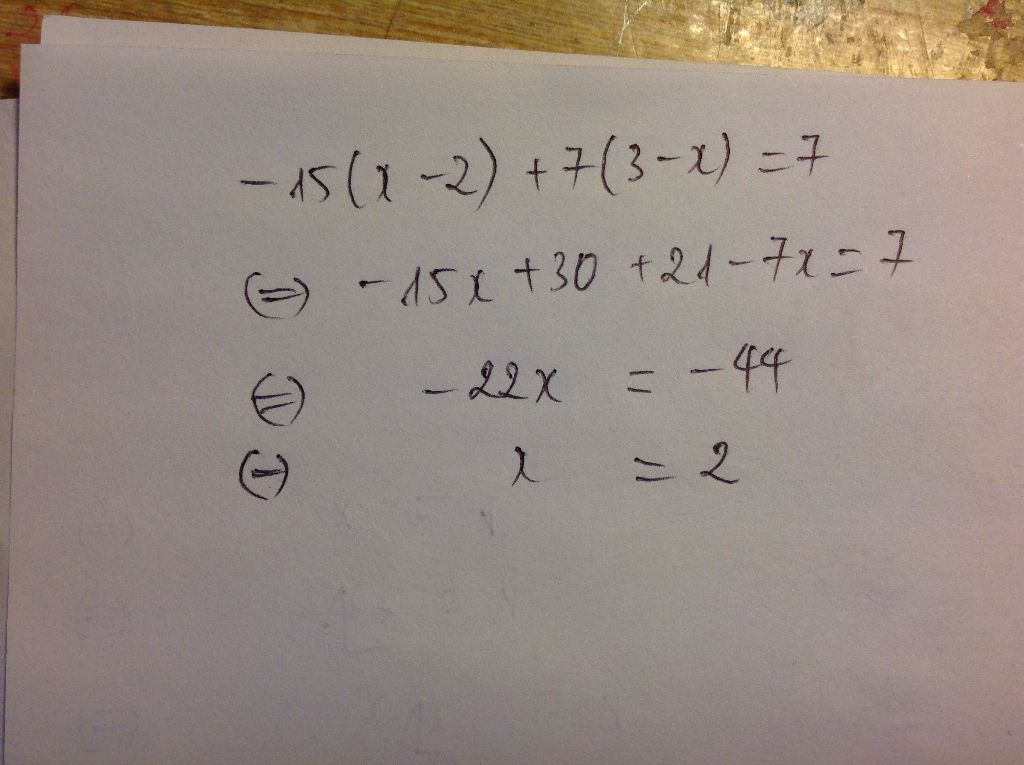 -15(x-2)+7(3-x)=7
(=) -15x+30+21-7x=7
(=) -22x = -44
(=) x = 2